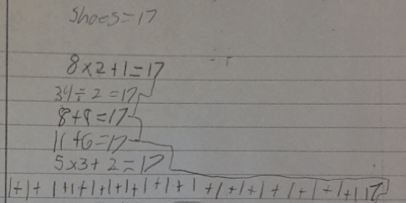 Shoes=17
8×2+1=17
34÷2=17
8+9=17
11+6=17
5×3+2=17
1+1+1+1+1+1+1+1+1+1+1+1+1+1+1+1+1=17